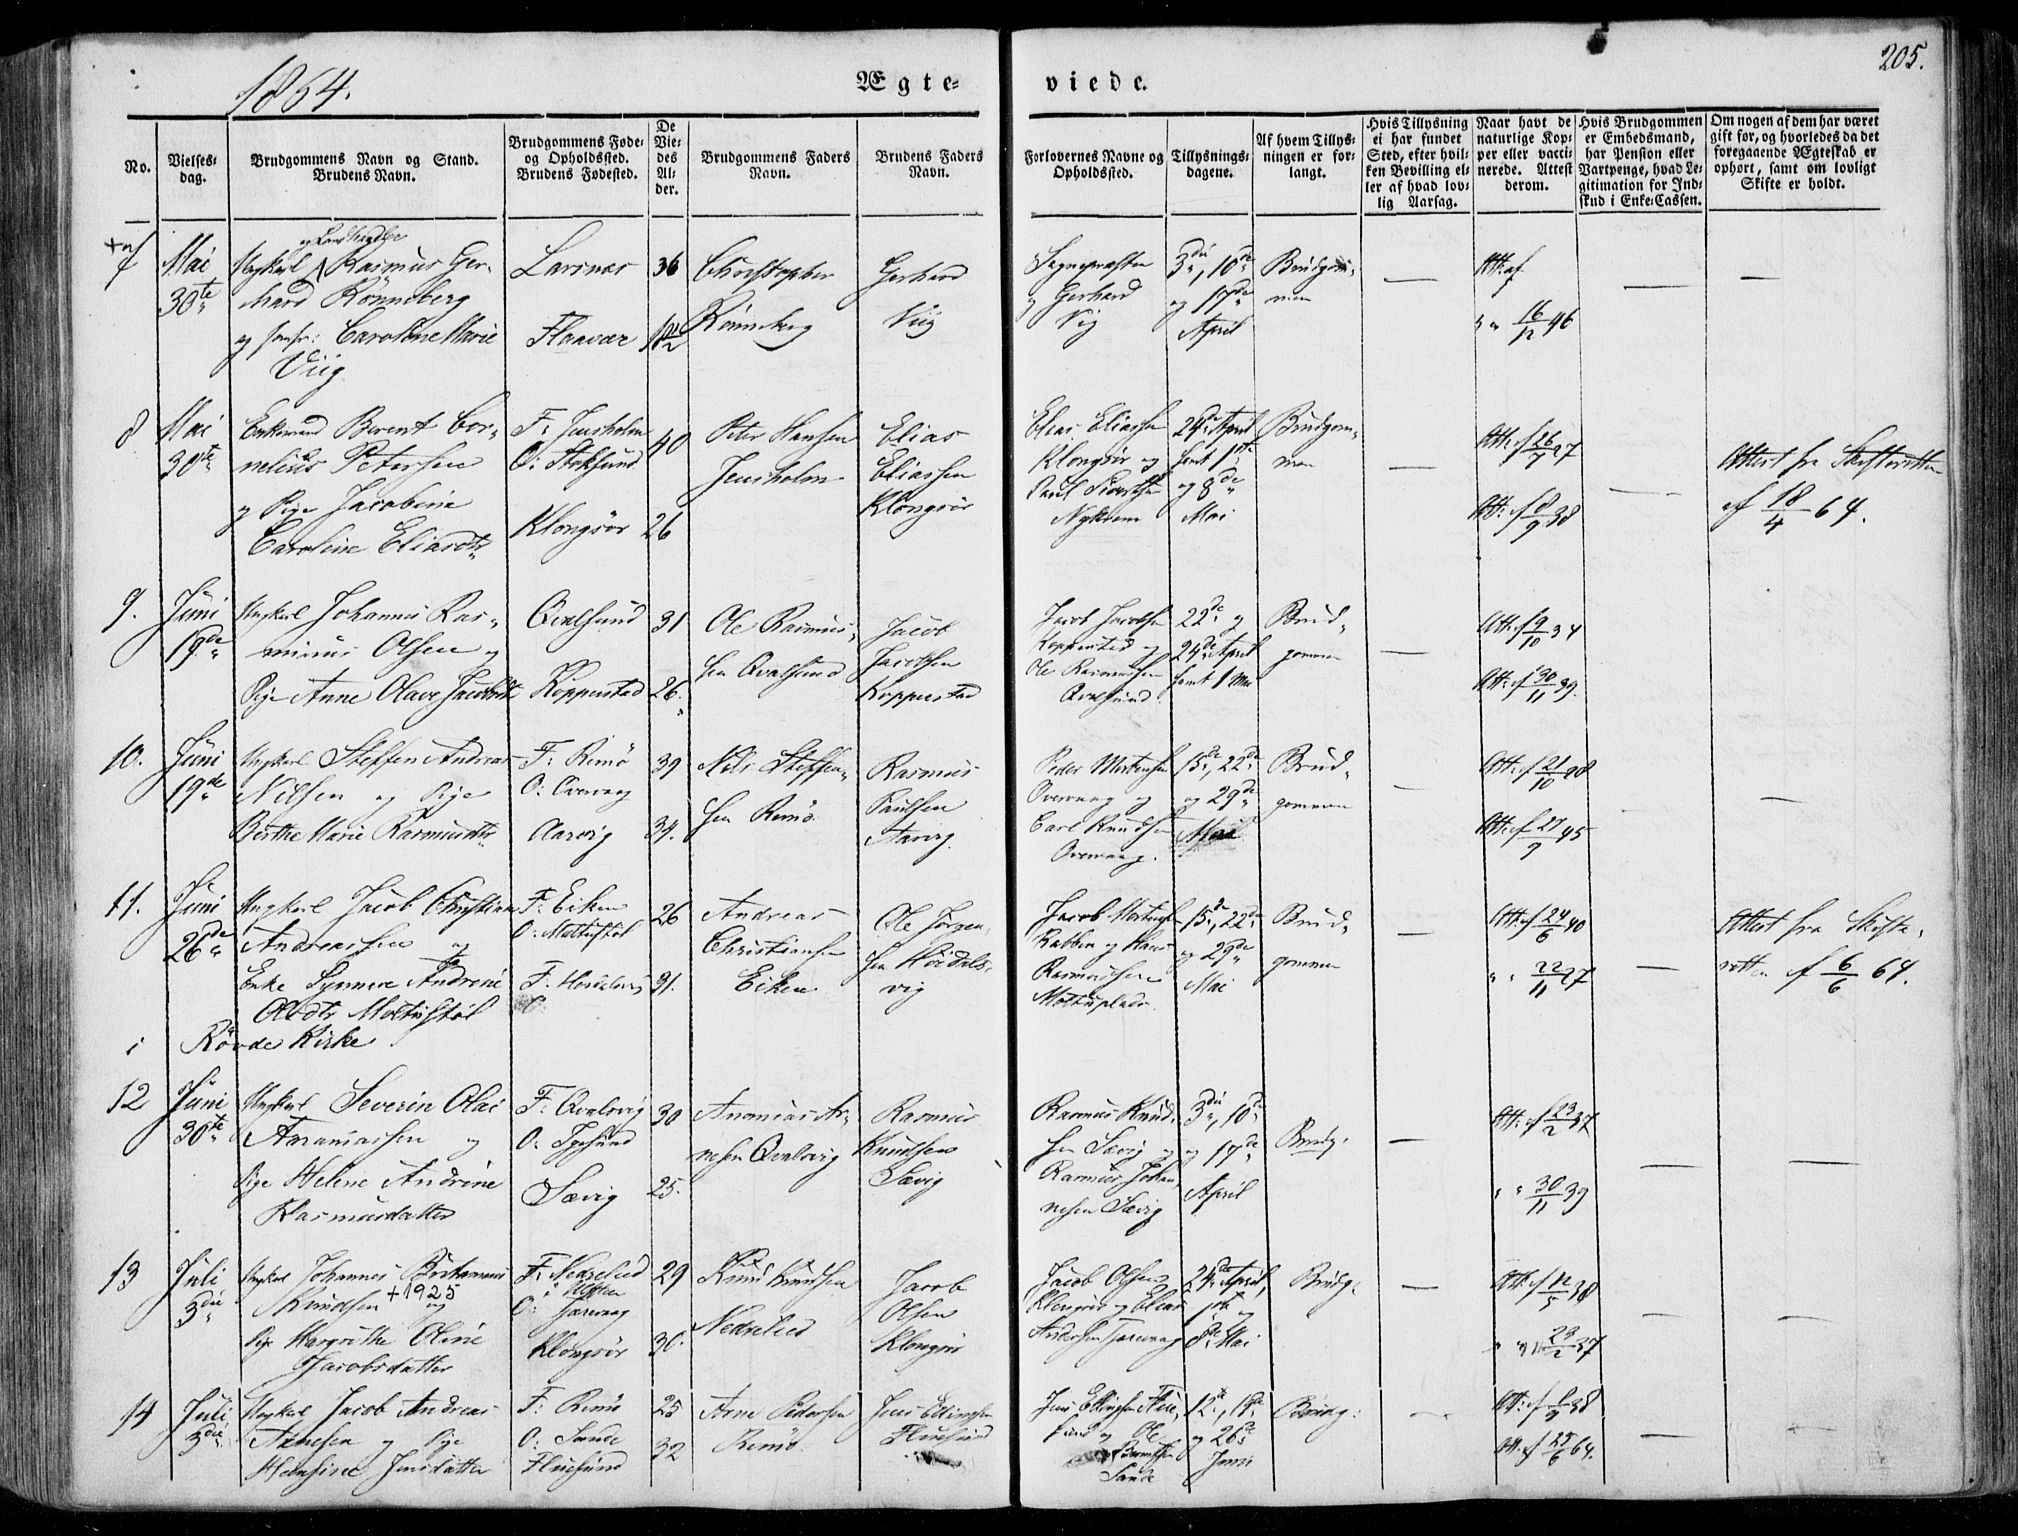 1864.
Ægte-
viede.
205.
No.
Vielses-
dag.
Brudgommens Navn og Stand.
Brudens Navn.
Brudgommens Føde-
og Opholdssted.
Brudens Fødested.
De
Vie-
des
Al-
der.
Brudgommens Faders
Navn.
Brudens Faders
Navn.
Forlovernes Navne og
Opholdssted.
Tillysnings-
dagene.
Af hvem Tillys-
ningen er for-
langt.
Hvis Tillysning
ei har fundet
Sted, efter hvil-
ken Bevilling el-
ler af hvad lov-
lig Aarsag.
Naar havt de
naturlige Kop-
per eller vacci-
nerede. Attest
derom.
Hvis Brudgommen
er Embedsmand,
har Pension eller
Vartpenge, hvad Le-
gitimation for Ind-
skud i Enke-Cassen.
Om nogen af dem har været
gift før, og hvorledes da det
foregaaende Ægteskab er
ophørt, samt om lovligt
Skifte er holdt.
7
Mai
30te
og Landhandler
Ungkarl Rasmus Ger-
hard Rønneberg
og Jomfr: Caroline Marie
Viig
Larsnæs
Flaavær
36
Christopher
Rønneberg
Gerhard
Viig
Sognepræsten
og Gerhard
Viig
3die, 10de
og 17de
April
Brudgom-
men
Att: af
" " 16/12 46
8
Mai
30te
Enkemand Berent Cor-
nelius Petersen
og Pige Jacobine
Caroline Eliasdtr
F: Jensholm
O: Stoksund
Klongsør
40
26
Peter Hansen
Jensholm
Elias
Eliassen
Klongsør
Elias Eliassen
Klongsør og
Paul Sivertsen
24de April
samt 1ste
og 8de
Mai
Brudgom-
men
Att: af 26/7 27
Att: af 8/9 38
Attest fra Skifteretten
af 18/4 64.
9.
Juni
19de
Ungkarl Johannes Ras-
minus Olsen og
Pige Anne Olave Jacobsdtr
Qvalsund
Koppestad
31
26.
Ole Rasmus-
sen Qvalsund
Jacob
Jacobsen
Koppestad
Jacob Jacobsen
Koppestad og
Ole Rasmussen
Qvalsund
22de og
24de April
samt 1 Mai
Brud-
gommen
Att: af 9/10 34
Att: af 30/11 39.
10.
Juni
19de
Ungkarl Steffen Andreas
Nilsen og Pige
Berthe Marie Rasmusdtr
F: Remø
O: Overvaag
Aarvig
39
34.
Nils Steffen-
sen Remø
Rasmus
Paulsen
Aarvig.
Peder Mortensen
Overvaag og
Carl Knudsen
Overvaag.
15de, 22de
og 29de
Mai
Brud-
gommen
Att: af 21/10 28
Att: af 27/9 45
11.
Juni
26de
Ungkarl Jacob Christian
Andreassen og
Enke Synneve Andrine
Olsdtr Moltustøl
F: Eiken
O: Moltustøl
F: Høidalsvig
26
31.
Andreas
Christiansen
Eiken
Ole Jørgen-
sen Høidals-
vig
Jacob Mortensen
Rabben og Hans
Rasmussen
Moltuplads
15de, 22de
og 29de
Mai
Brud-
gommen
Att: af 24/6 40
" " 22/11 27
Attest fra Skifte-
retten af 6/6 64.
i Røvde Kirke
12
Juni
30te
Ungkarl Severin Olai
Ananiassen og
Pige Helene Andrine
Rasmusdatter
F: Qvalsvig
O: Igesund
Sævig
30
25.
Ananias Ar-
nesen Qvalsvig
Rasmus
Knudsen
Sævig
Rasmus Knud-
sen Sævig og
Rasmus Johan-
nesen Sævig
3die, 10de
og 17de
April
Brudg.
Att: af 23/2 37
" " 30/11 39
13
Juli
3die
Ungkarl Johannes
Knudsen +1925 og
Pige Margrethe Oline
Jacobsdatter
F: Nedrelied
O: Jærvaag
Klongsør
29
30.
Knud Knudsen
Nedrelied
Jacob
Olsen
Klongsør
Jacob Olsen
Klongsør og Elias
Andersen Jærvaag
24de April,
1ste og
8de Mai
Brudg.
Att: af 12/5 38
" " 23/2 37
14
Juli
3die
Ungkarl Jacob Andreas
Arnesen og Pige
Hansine Jensdatter
F: Remø
O: Sande
Fluesund
25
32
Arne Pedersen
Remø
Jens Ellingsen
Fluesund
Jens Ellingsen Flue-
sund og Ole
Berentsen
Sande
12te, 19de
og 26de
Juni
Brudg:
Att: af 25/6 64.